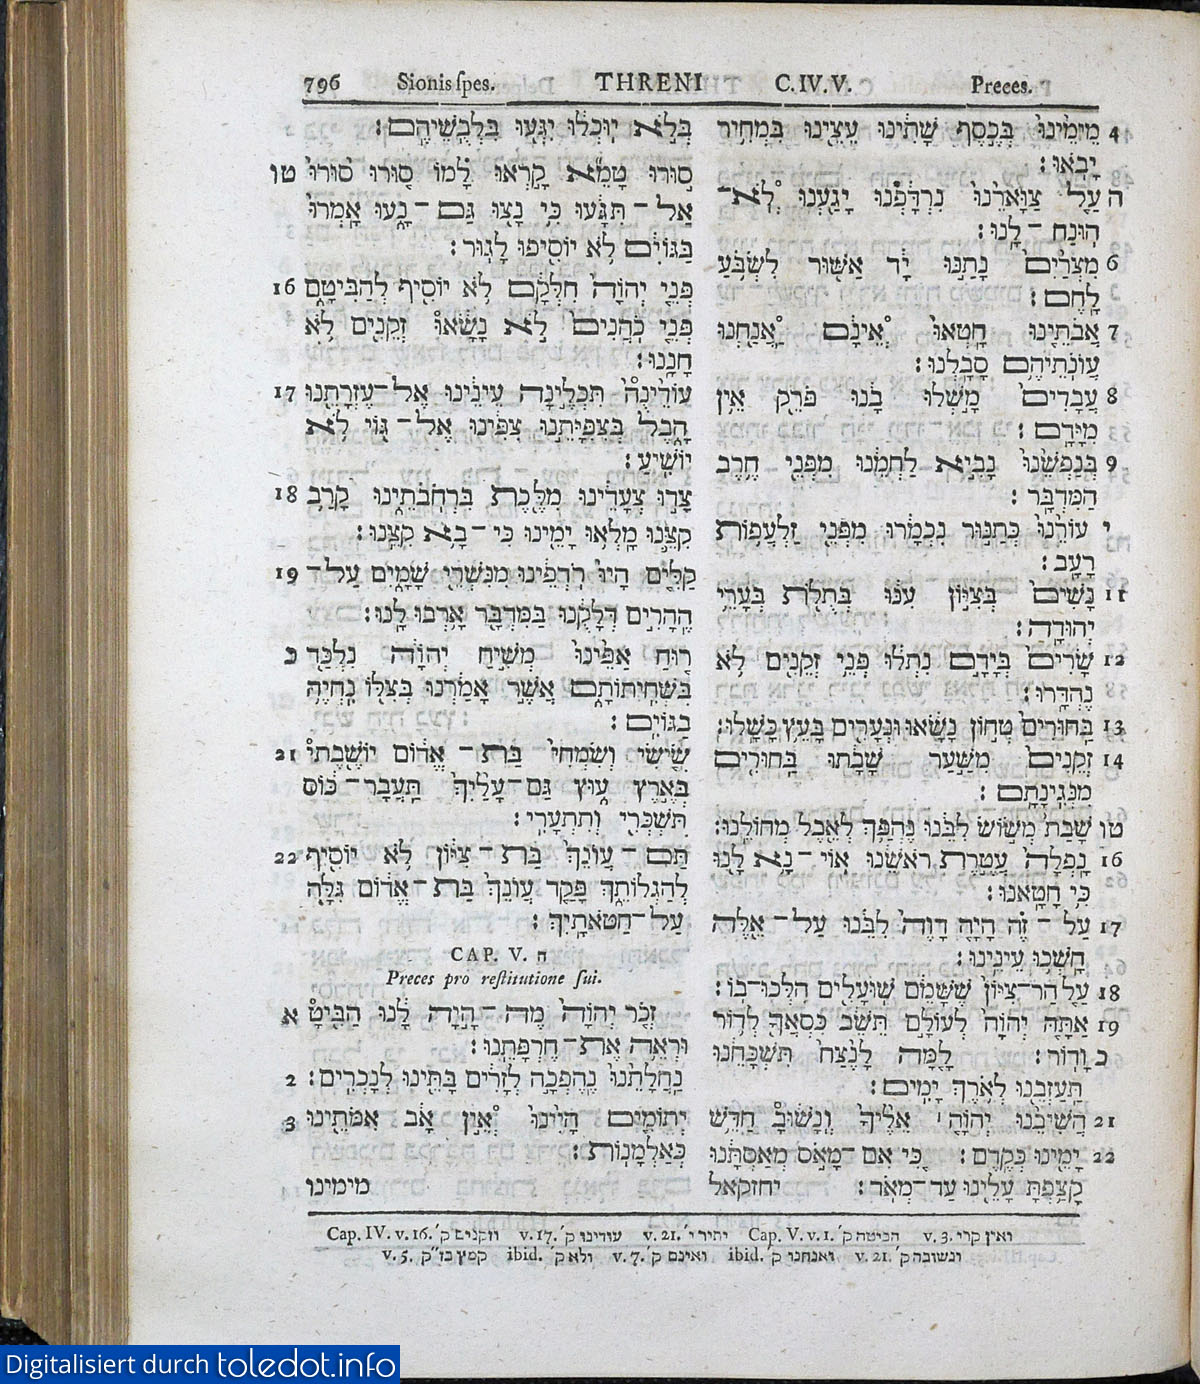 796 Sionis ſpes. THRENI C. IV. V. Preces.
בְּלֹא יֽוּכְלוּ יִגְּעוּ בִּלְבֻשֵׁיהֶם׃
סוּרוּ טָמֵא קָרְאוּ לָמוֹ סוּרוּ סוּרוּ טו
אַל־תִּגָּעוּ כִּי נָצוּ גַּם־נָעוּ אָמְרוּ
בַּגּוֹיִם לֹא יוֹסִיפוּ לָגוּר׃
פְּנֵי יְהוָה חִלְּקָם לֹא יוֹסִיף לְהַבִּיטָם 16
פְּנֵי כֹהֲנִים לֹא נָשָׂאוּ זְקֵנִים לֹא
חָנָנוּ׃
עוֹדֵינָה תִּכְלֶינָה עֵינֵינוּ אֶל־עֶזְרָתֵנוּ 17
הָבֶל בְּצִפִּיָּתֵנוּ צִפִּינוּ אֶל־גּוֹי לֹא
יוֹשִׁיעַ׃
צָדוּ צְעָדֵינוּ מִלֶּכֶת בִּרְחֹבֹתֵינוּ קָרַב 18
קִצֵּנוּ מָלְאוּ יָמֵינוּ כִּי־בָא קִצֵּנוּ׃
קַלִּים הָיוּ רֹדְפֵינוּ מִנִּשְׁרֵי שָׁמָיִם עַל־ 19
הֶהָרִים דְּלָקֻנוּ בַּמִּדְבָּר אָרְבוּ לָנוּ׃
רוּחַ אַפֵּינוּ מְשִׁיחַ יְהוָה נִלְכַּד כ
בִּשְׁחִיתוֹתָם אֲשֶׁר אָמַרְנוּ בְּצִלּוֹ נִחְיֶה
בַגּוֹיִם׃
שִׂישִׂי וְשִׂמְחִי בַּת־אֱדוֹם יוֹשֶׁבֶתי 21
בְּאֶרֶץ עוּץ גַּם־עָלַיִךְ תַּעֲבָר־כּוֹס
תִּשְׁכְּרִי וְתִתְעָרִי׃
תַּם־עֲוֹנֵךְ בַּת־צִיּוֹן לֹא יוֹסִיף 22
לְהַגְלוֹתֵךְ פָּקַד עֲוֹנֵךְ בַּת־אֱדוֹם גִּלָּה
עַל־חַטֹּאתָיִךְ׃
CAP. V. ה
Preces pro reſtitutione ſui.
זְכֹר יְהוָה מֶה־הָיָה לָנוּ הַבִּיטָ א
וּרְאֵה אֶת־חֶרְפָּתֵנוּ׃
נַחֲלָתֵנוּ נֶהֶפְכָה לְזָרִים בָּתֵּינוּ לְנָכְרִים׃ 2
יְתוֹמִים הָיִינוּ אֵין אָב אִמֹּתֵינוּ 3
כְּאַלְמָנוֹת׃
מימינו
4 מֵימֵינוּ בְּכֶסֶף שָׁתִינוּ עֵצֵינוּ בִּמְחִיר
יָבֹאוּ׃
ה עַל צַוָּארֵנוּ נִרְדָּפְנוּ יָגַעְנוּ לֹא־
הוּנַח־לָנוּ׃
6 מִצְרַיִם נָתַנּוּ יָד אַשּׁוּר לִשְׂבֹּעַ
לָחֶם׃
7 אֲבֹתֵינוּ חָטְאוּ אֵינָם אֲנַחְנוּ
עֲוֹנֹתֵיהֶם סָבָלְנוּ׃
8 עֲבָדִים מָשְׁלוּ בָנוּ פֹּרֵק אֵין
מִיָּדָם׃
9 בְּנַפְשֵׁנוּ נָבִיא לַחְמֵנוּ מִפְּנֵי חֶרֶב
הַמִּדְבָּר׃
י עוֹרֵנוּ כְּתַנּוּר נִכְמָרוּ מִפְּנֵי זַלְעֲפוֹת
רָעָב׃
11 נָשִׁים בְּצִיּוֹן עִנּוּ בְּתֻלֹת בְּעָרֵי
יְהוּדָה׃
12 שָׂרִים בְּיָדָם נִתְלוּ פְּנֵי זְקֵנִים לֹא
נֶהְדָּרוּ׃
13 בַּחוּרִים טְחוֹן נָשָׂאוּ וּנְעָרִים בָּעֵץ כָּשָׁלוּ׃
14 זְקֵנִים מִשַּׁעַר שָׁבָתוּ בַּחוּרִים
מִנְּגִינָתָם׃
טו שָׁבַת מְשׂוֹשׂ לִבֵּנוּ נֶהְפַּךְ לְאֵבֶל מְחוֹלֵנוּ׃
16 נָפְלָה עֲטֶרֶת רֹאשֵׁנוּ אוֹי־נָא לָנוּ
כִּי חָטָאנוּ׃
17 עַל־זֶה הָיָה דָוֶה לִבֵּנוּ עַל־אֵלֶּה
חָשְׁכוּ עֵינֵינוּ׃
18 עַל הַר־צִיּוֹן שֶׁשָּׁמֵם שׁוּעָלִים הִלְּכוּ־בוֹ׃
19 אַתָּה יְהוָה לְעוֹלָם תֵּשֵׁב כִּסְאֲךָ לְדוֹר
כ וָדוֹר׃ לָמָּה לָנֶצַח תִּשְׁכָּחֵנוּ
תַּעַזְבֵנוּ לְאֹרֶךְ יָמִים׃
21 הֲשִׁיבֵנוּ יְהוָה אֵלֶיךָ וְנָשׁוּבָ חַדֵּשׁ
22 יָמֵינוּ כְּקֶדֶם׃ כִּי אִם־מָאֹס מְאַסְתָּנוּ
קָצַפְתָּ עָלֵינוּ עַד־מְאֹד׃ יחזקאל
Cap. IV. v. 16. וזקנים ק׳ v. 17. עודינו ק׳ v. 21. יתיר י׳ Cap. V. v. 1. הביטה ק׳ v. 3. ואין קרי
v. 5. קמץ בז״ק ibid. ולא ק׳ v. 7. ואינם ק׳ ibid. ואנחנו ק׳ v. 21. ונשובה ק׳
Digitalisiert durch toledot.info